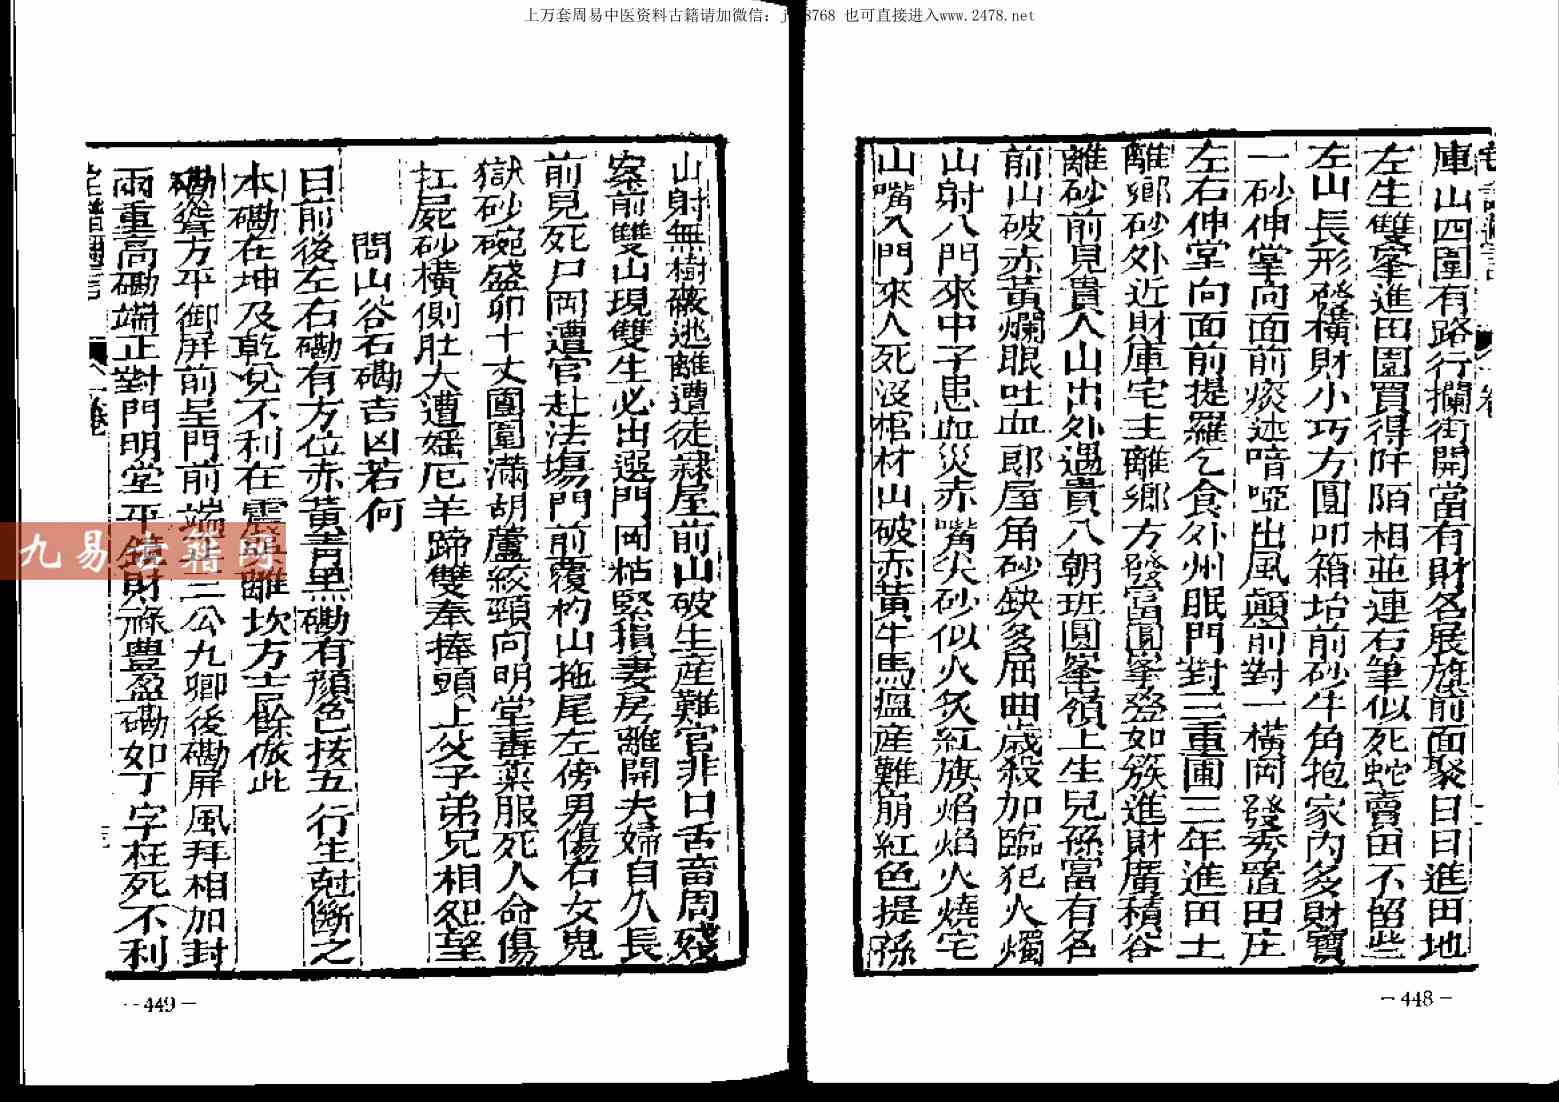 上万套周易中医资料古籍请加微信：j 8768 也可直接进入www.2478.net
庫山四圍有路行攔街開當有財名展旗前面聚日日進田地
左生雙峯進田園買得阡陌相並連右筆似死蛇賣田不留些
左山長形發橫財小巧方圓叩箱抬前砂牛角抱家內多財寶
一砂伸掌向面前痰迷喑啞出風顛前對一橫岡發秀置田庄
左右伸堂向面前提羅乞食外州眠門對三重圃三年進田土
離鄉砂外近財庫宅主離鄉方發富圓峯登如簇進財廣積谷
離砂前見貴人山出外遇貴人朝班圓峯嶺上生兒孫富有名
前山破赤黃爛眼吐血郎屋角砂缺多屈曲歲殺加臨犯火燭
山射八門來中子患血災赤嘴尖砂似火炙紅旗焰焰火燒宅
山嘴入門來人死沒棺材山破赤黃牛馬瘟産難崩紅色提孫
－448－
山射無樹破逃離遭徒隸屋前山破生産難官非口舌畜周殘
案前雙山現雙生必出選門岡枯緊損妻房離開夫婦自久長
前見死尸岡遭官赴法場門前覆杓山拖尾左傍男傷右女鬼
獄砂碗盛卵十丈圍圍滿胡蘆絞頸向明堂毒藥服死人命傷
扛屍砂橫側肚大遭婬厄羊蹄雙奉捧頭上父子弟兄相怨望
問山谷石磡吉凶若何
曰前後左右磡有方位赤黃青黑磡有顏色按五行生尅斷之
本磡在坤及乾兌不利在震巽離坎方吉餘倣此
磡聳方平御屏前呈門前端 三公九卿後磡屏風拜相加封
兩重高磡端正對門明堂平 財祿豐盈磡如丁字枉死不利
－449－
九易古籍网